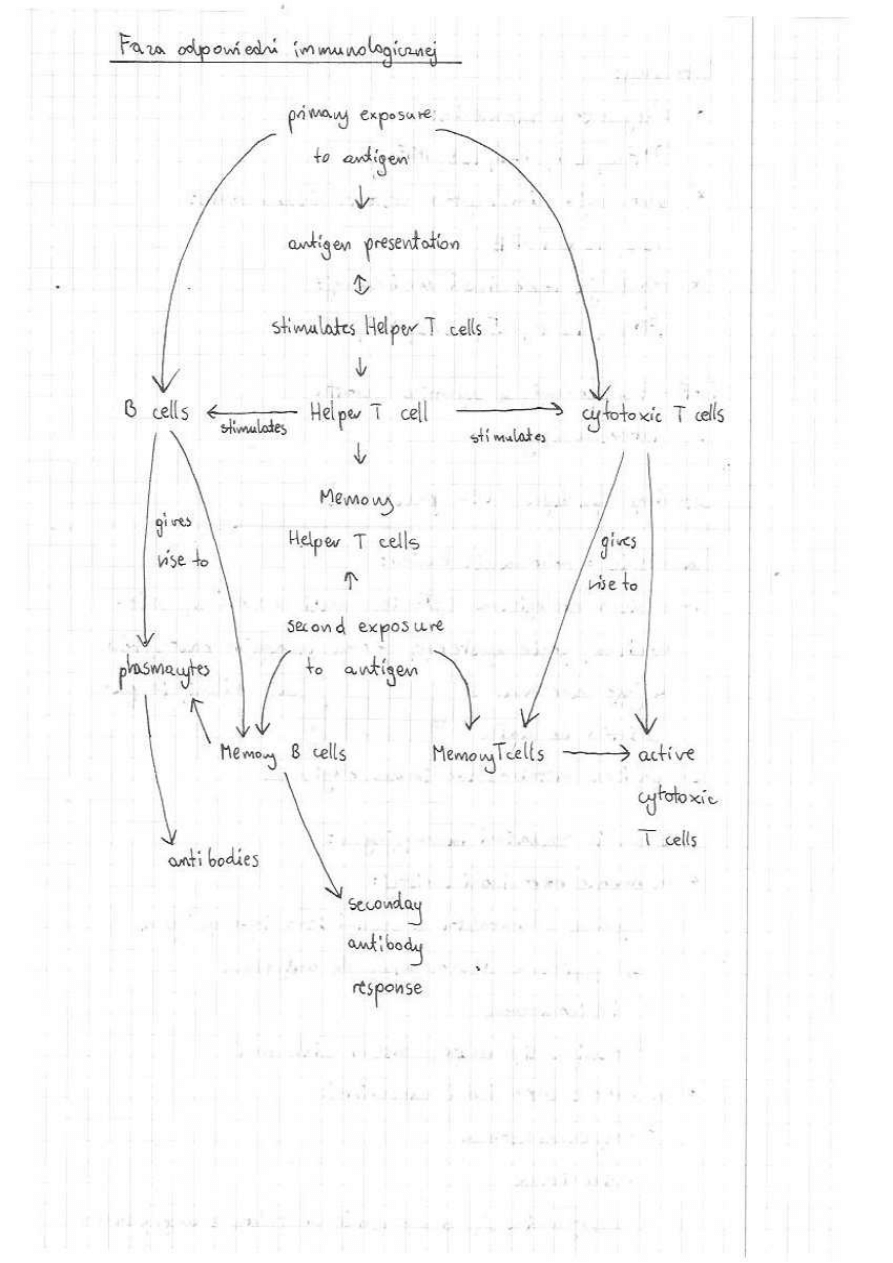 Faza odpowiedzi immunologicznej
primary exposure
to antigen
antigen presentation
stimulates Helper T cells
B cells
stimulates
Helper T cell
stimulates
cytotoxic T cells
Memory
Helper T cells
gives
rise to
gives
rise to
second exposure
to antigen
plasmacytes
Memory B cells
Memory T cells
active
cytotoxic
T cells
antibodies
seconday
antibody
response